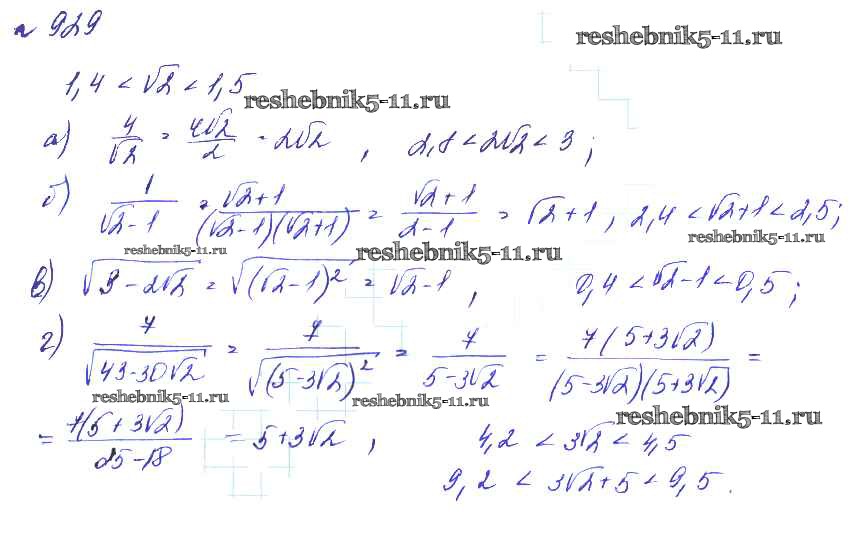 № 929
reshebnik5-11.ru
1,4 < √2 < 1,5
reshebnik5-11.ru
а) 4/√2 = 4√2/2 = 2√2 , 2,8 < 2√2 < 3 ;
б) 1/(√2-1) = (√2+1)/((√2-1)(√2+1)) = (√2+1)/(2-1) = √2+1 , 2,4 < √2+1 < 2,5;
reshebnik5-11.ru reshebnik5-11.ru reshebnik5-11.ru
в) √(3-2√2) = √((√2-1)²) = √2-1 , 0,4 < √2-1 < 0,5 ;
г) 7/√(43-30√2) = 7/√((5-3√2)²) = 7/(5-3√2) = 7(5+3√2)/((5-3√2)(5+3√2)) =
reshebnik5-11.ru reshebnik5-11.ru reshebnik5-11.ru
= 7(5+3√2)/(25-18) = 5+3√2 , 4,2 < 3√2 < 4,5
9,2 < 3√2+5 < 9,5.